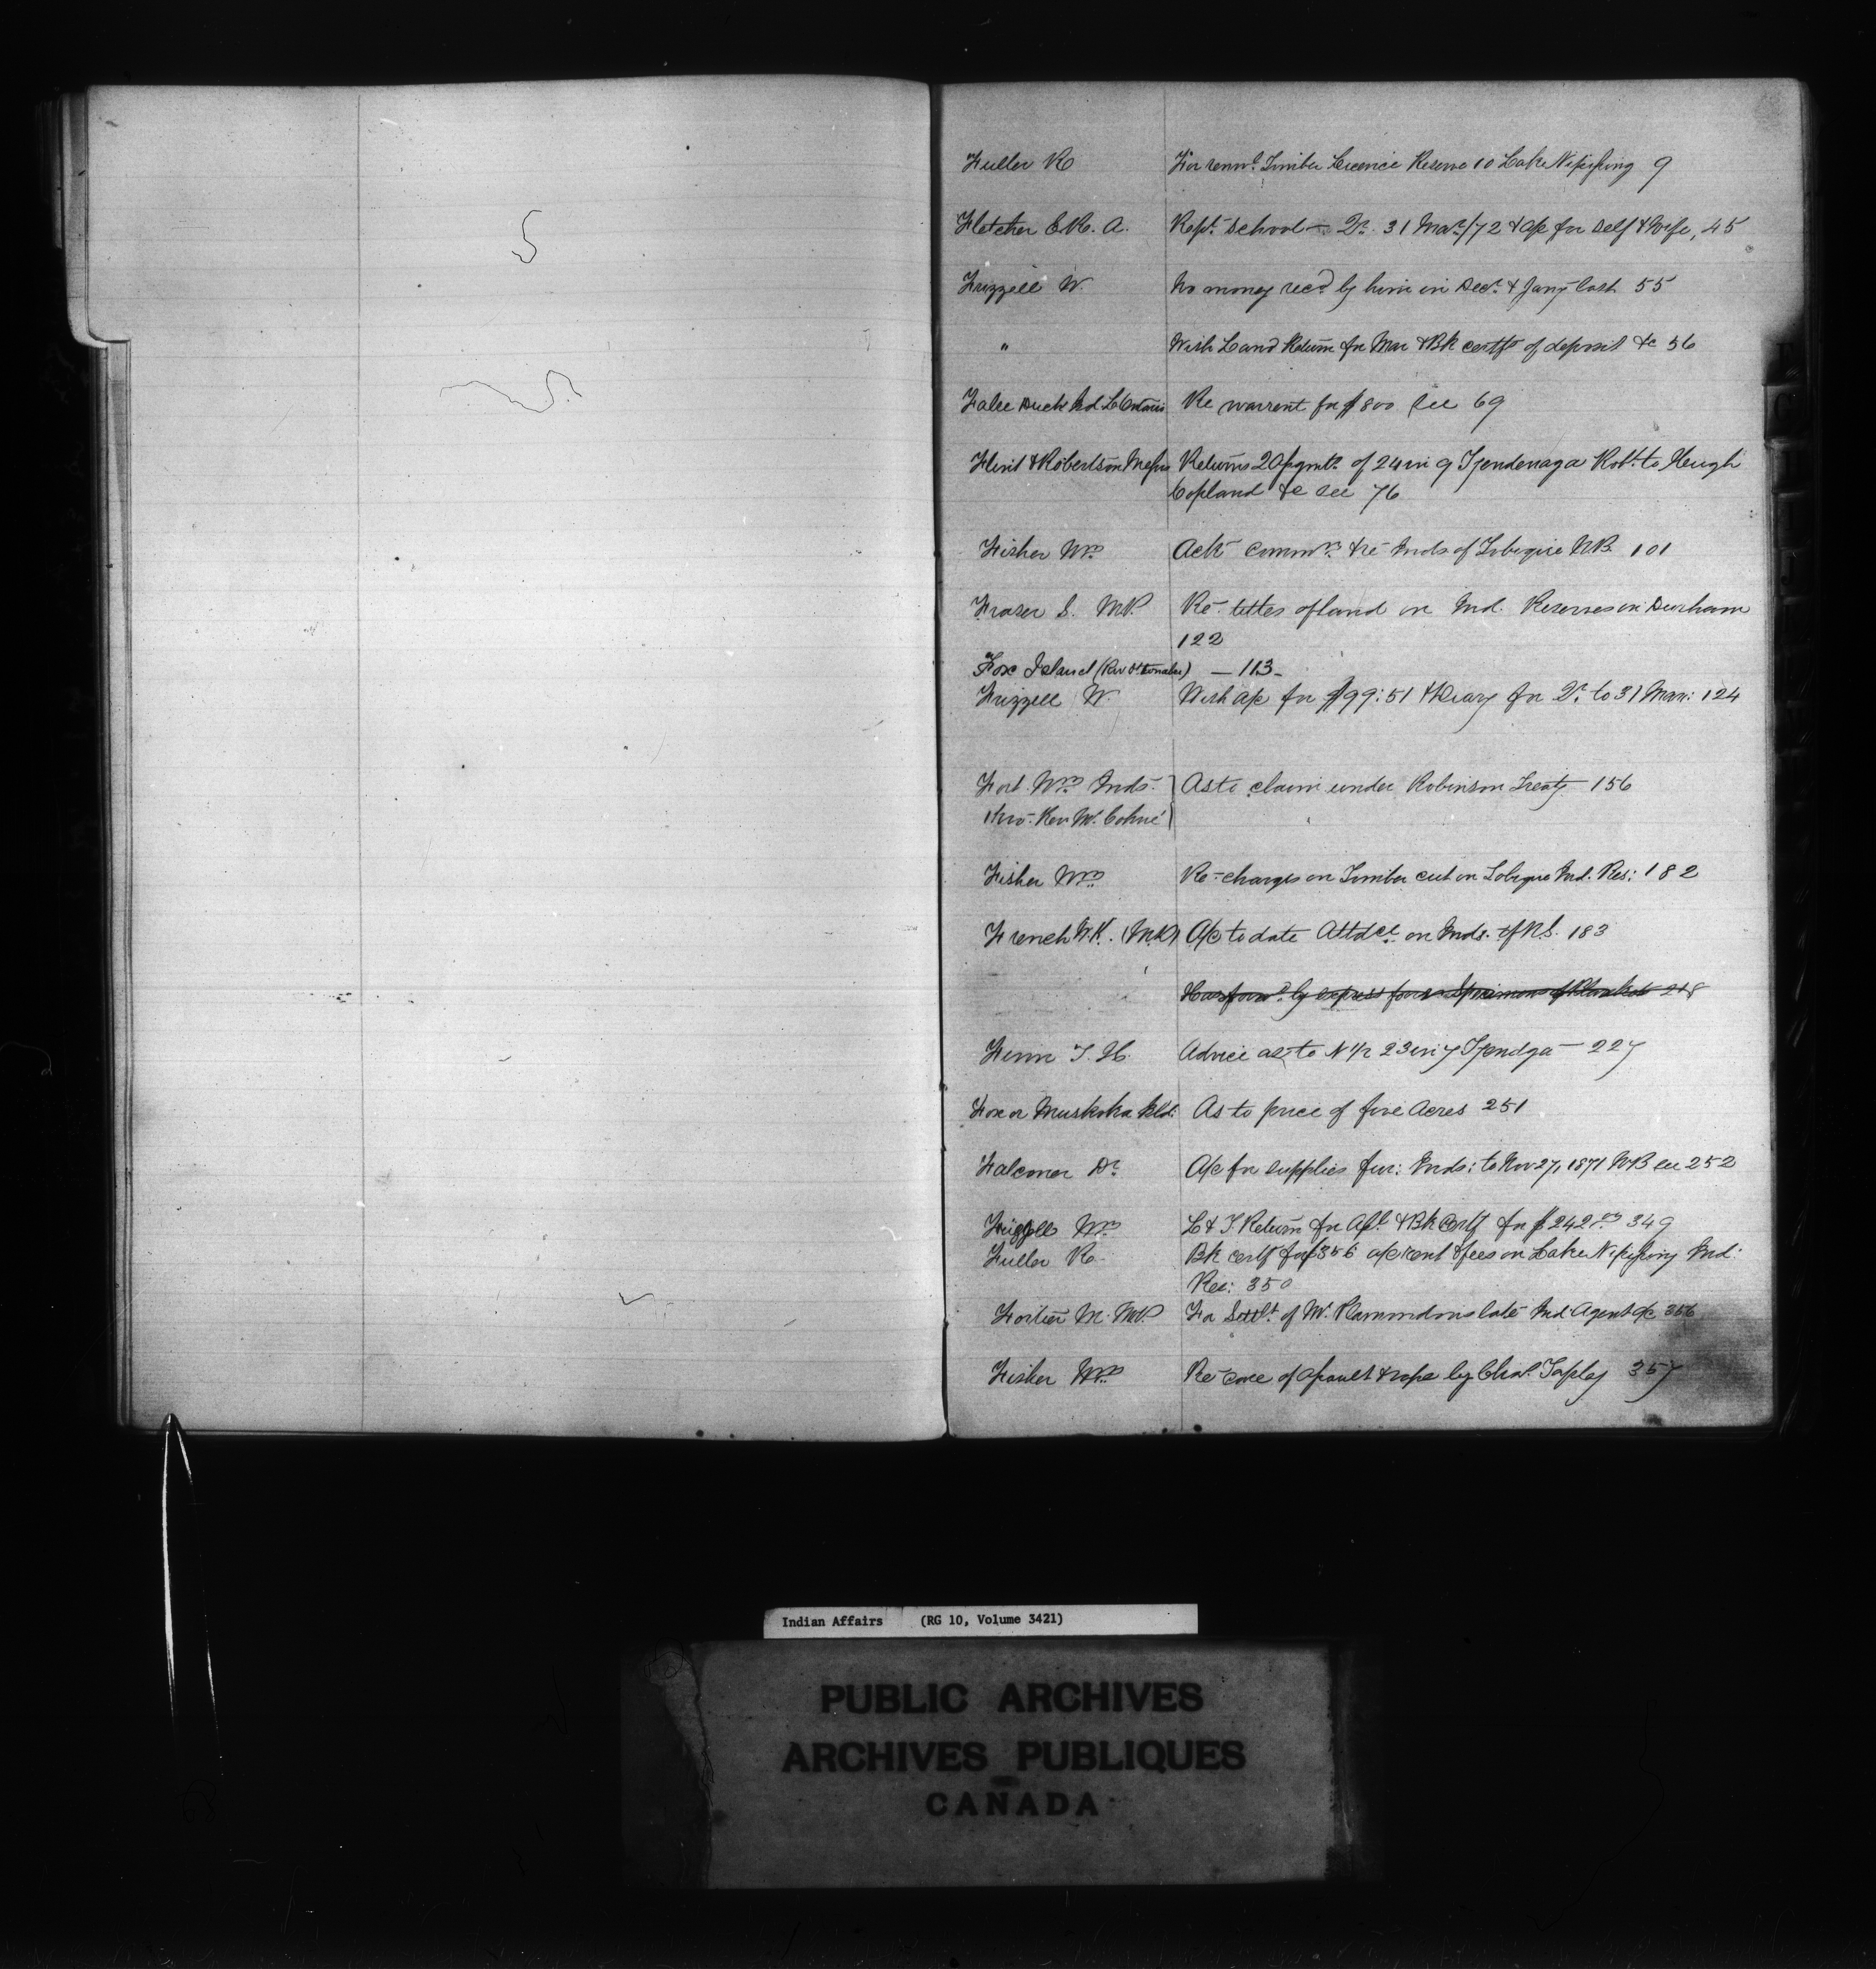 Fuller R For renwl. Timber Licence Reserve 10 Lake Nipissing 9
Fletcher E.R.A. Rept. School Qr. 31 Mar/72 & a/c for self & Wife, 45
Frizzell W. No money recd by him in Decr. & Jany last 55
" With Land Return for Mar & Bk certfs of deposit &c 56
False Duck Isd L Ontario Re warrant for $800 see 69
Flint & Robertson Messrs Returns 20 pgmts. of 24 in 9 Tyendenaga Robt. to Keugh
Copland &c see 76
Fisher Wm Ack commn. & re Inds of Tobique NB. 101
Fraser S. MP. Re titles of land on Ind. Reserves in Durham
122
Fox Island (Riv Otonabee) — 113 -
Frizzell W. With a/c for $99:51 & Diary for Qr. to 31 Mar: 124
Fort Wm Inds. As to claim under Robinson Treaty 156
Fisher Wm Re charges on Timber cut on Tobique Ind. Res: 182
French (M.D) A/c to date Attdce on Inds. of N.S. 183
Has forwd. by express four Specimens of Blankets 218
Finn T. H. Advice as to N 1/2 23 in 7 Tyendga — 227
Fox or Muskoka Isld: As to price of five Acres 251
Falconer Dr. A/c for supplies fur: Inds: to Nov 27, 1871 NB see 252
Frizzell Wm L & T. Return for Apl. & Bk Certf for $242 349
Fuller R Bk certf for $356 a/c rent & fees on Lake Nipissing Ind:
Res: 350
Fortier M. MP. For Settlt. of Mr. Plamondons late Ind. Agent a/c 356
Fisher Wm Re case of assault & rape by Chas. Tapley 357
Indian Affairs (RG 10, Volume 3421)
PUBLIC ARCHIVES
ARCHIVES PUBLIQUES
CANADA